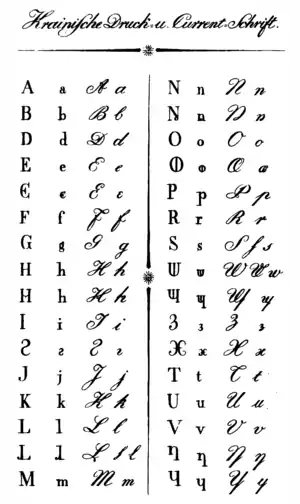 Krainische Druck- u. Current-Schrift.
A a A a
B b B b
D d D d
E e E e
Є є E e
F f F f
G g G g
H h H h
H h H h
I i I i
Ƨ ƨ Ƨ ƨ
J j J j
K k K k
L l L l
L l L ſ l
M m M m
N n N n
N n N n
O o O o
Ⲫ ⲫ Œ œ
P p P p
R r R r
S s S ſ s
Ш ш W W w
Ч ч Ч ч
З з З з
Ж x X x
T t T t
U u U u
V v V v
Ƞ ƞ Ƞ ƞ
Ч ч Y y